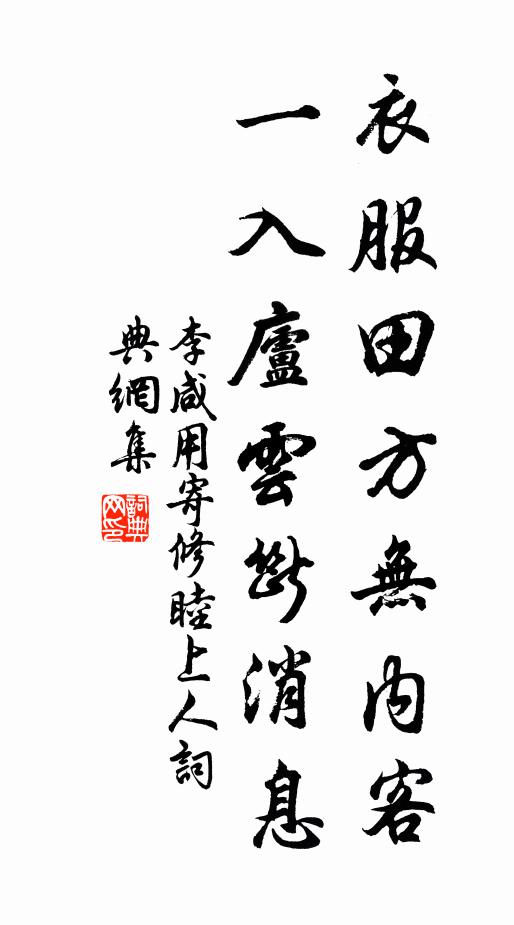 衣服田方無內客
一入廬雲斷消息
李咸用寄修睦上人詞
典網集
詞典網印